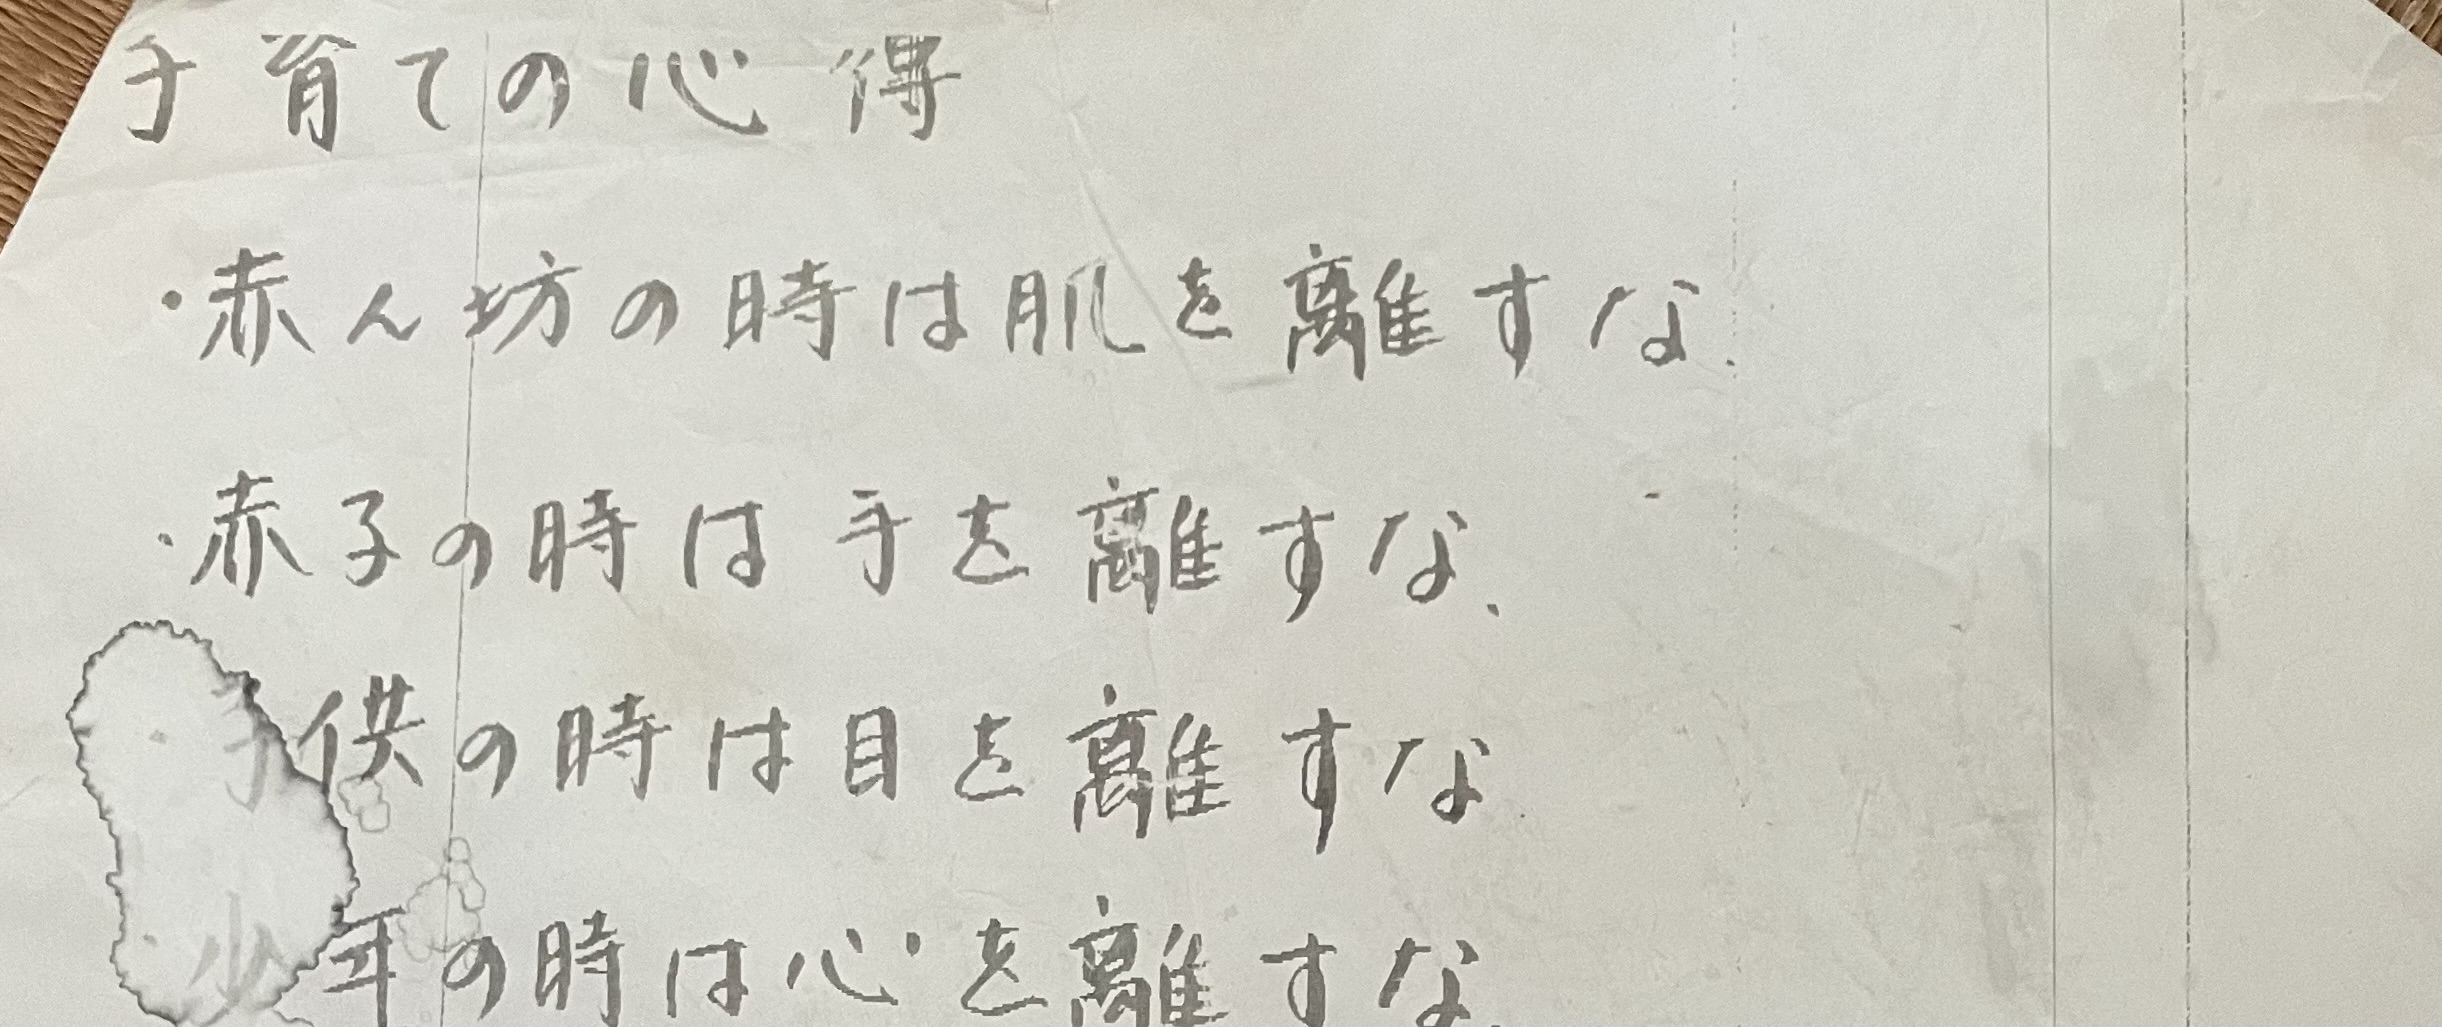 子育ての心得
・赤ん坊の時は肌を離すな.
・赤子の時は手を離すな、
・子供の時は目を離すな
・少年の時は心を離すな、